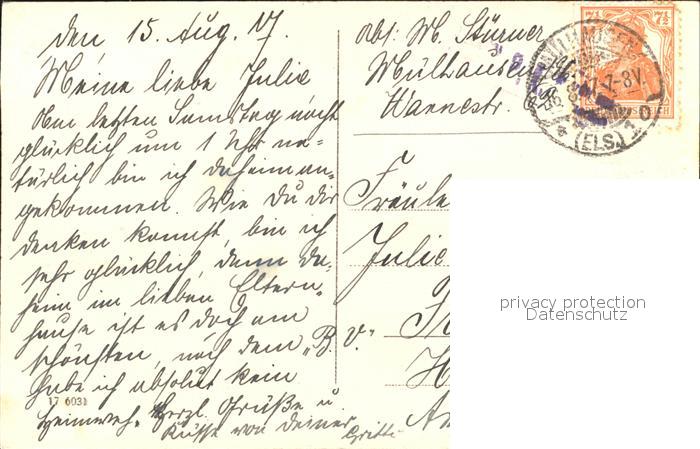 den 15. Aug. 17.
Meine liebe Julie
Am letzten Samstag nacht
glücklich um 1 Uhr na-
türlich bin ich daheim an-
gekommen. Wie du dir
denken kannst, bin ich
sehr glücklich, denn da-
heim im lieben Eltern-
hause ist es doch am
schönsten, nach dem "B. v."
habe ich absolut kein
Heimweh. Herzl. Grüße u.
Küsse von deiner
17 6031
Abs: M. Stürner
Mülhausen
Wannestr.
Fräule
Julie
MÜLHAUSEN
7-8V.
(ELS.)
7½ 7½
privacy protection
Datenschutz